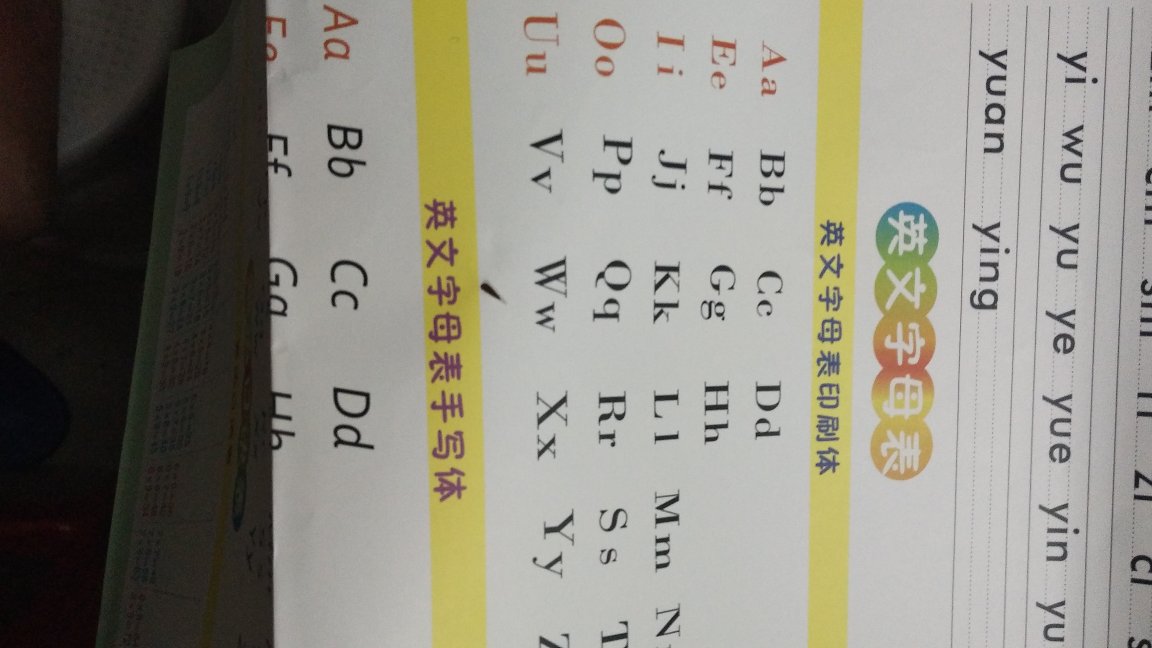 zi ci
yi wu yu ye yue yin yu
yuan ying
英文字母表
英文字母表印刷体
Aa Bb Cc Dd
Ee Ff Gg Hh
Ii Jj Kk Ll Mm N
Oo Pp Qq Rr Ss T
Uu Vv Ww Xx Yy Z
英文字母表手写体
Aa Bb Cc Dd
Ee Ff Gg Hh